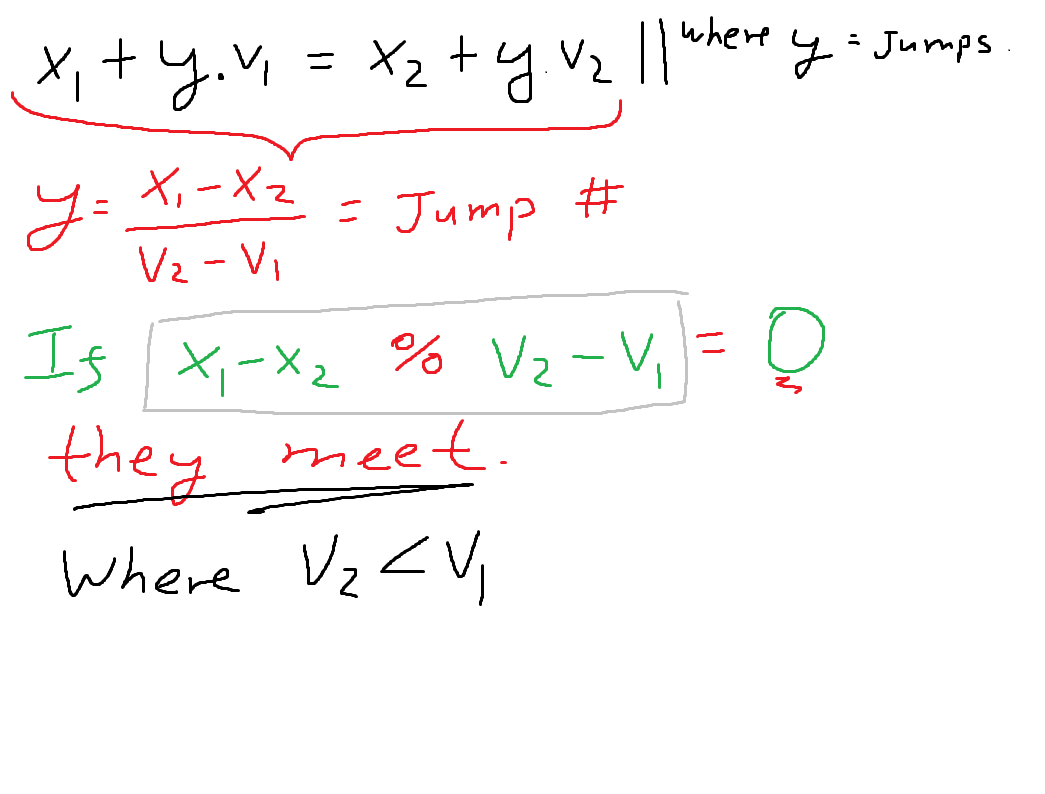 x₁ + y.v₁ = x₂ + y.v₂ || where y = Jumps.
y = x₁-x₂ / v₂-v₁ = Jump #
If x₁-x₂ % v₂-v₁ = 0
they meet.
Where v₂ < v₁